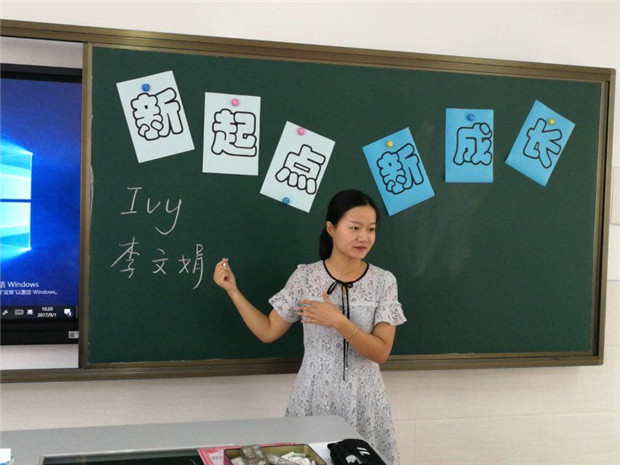 新起点 新成长
Ivy
李文娟
活 Windows
10:20
2017/9/1